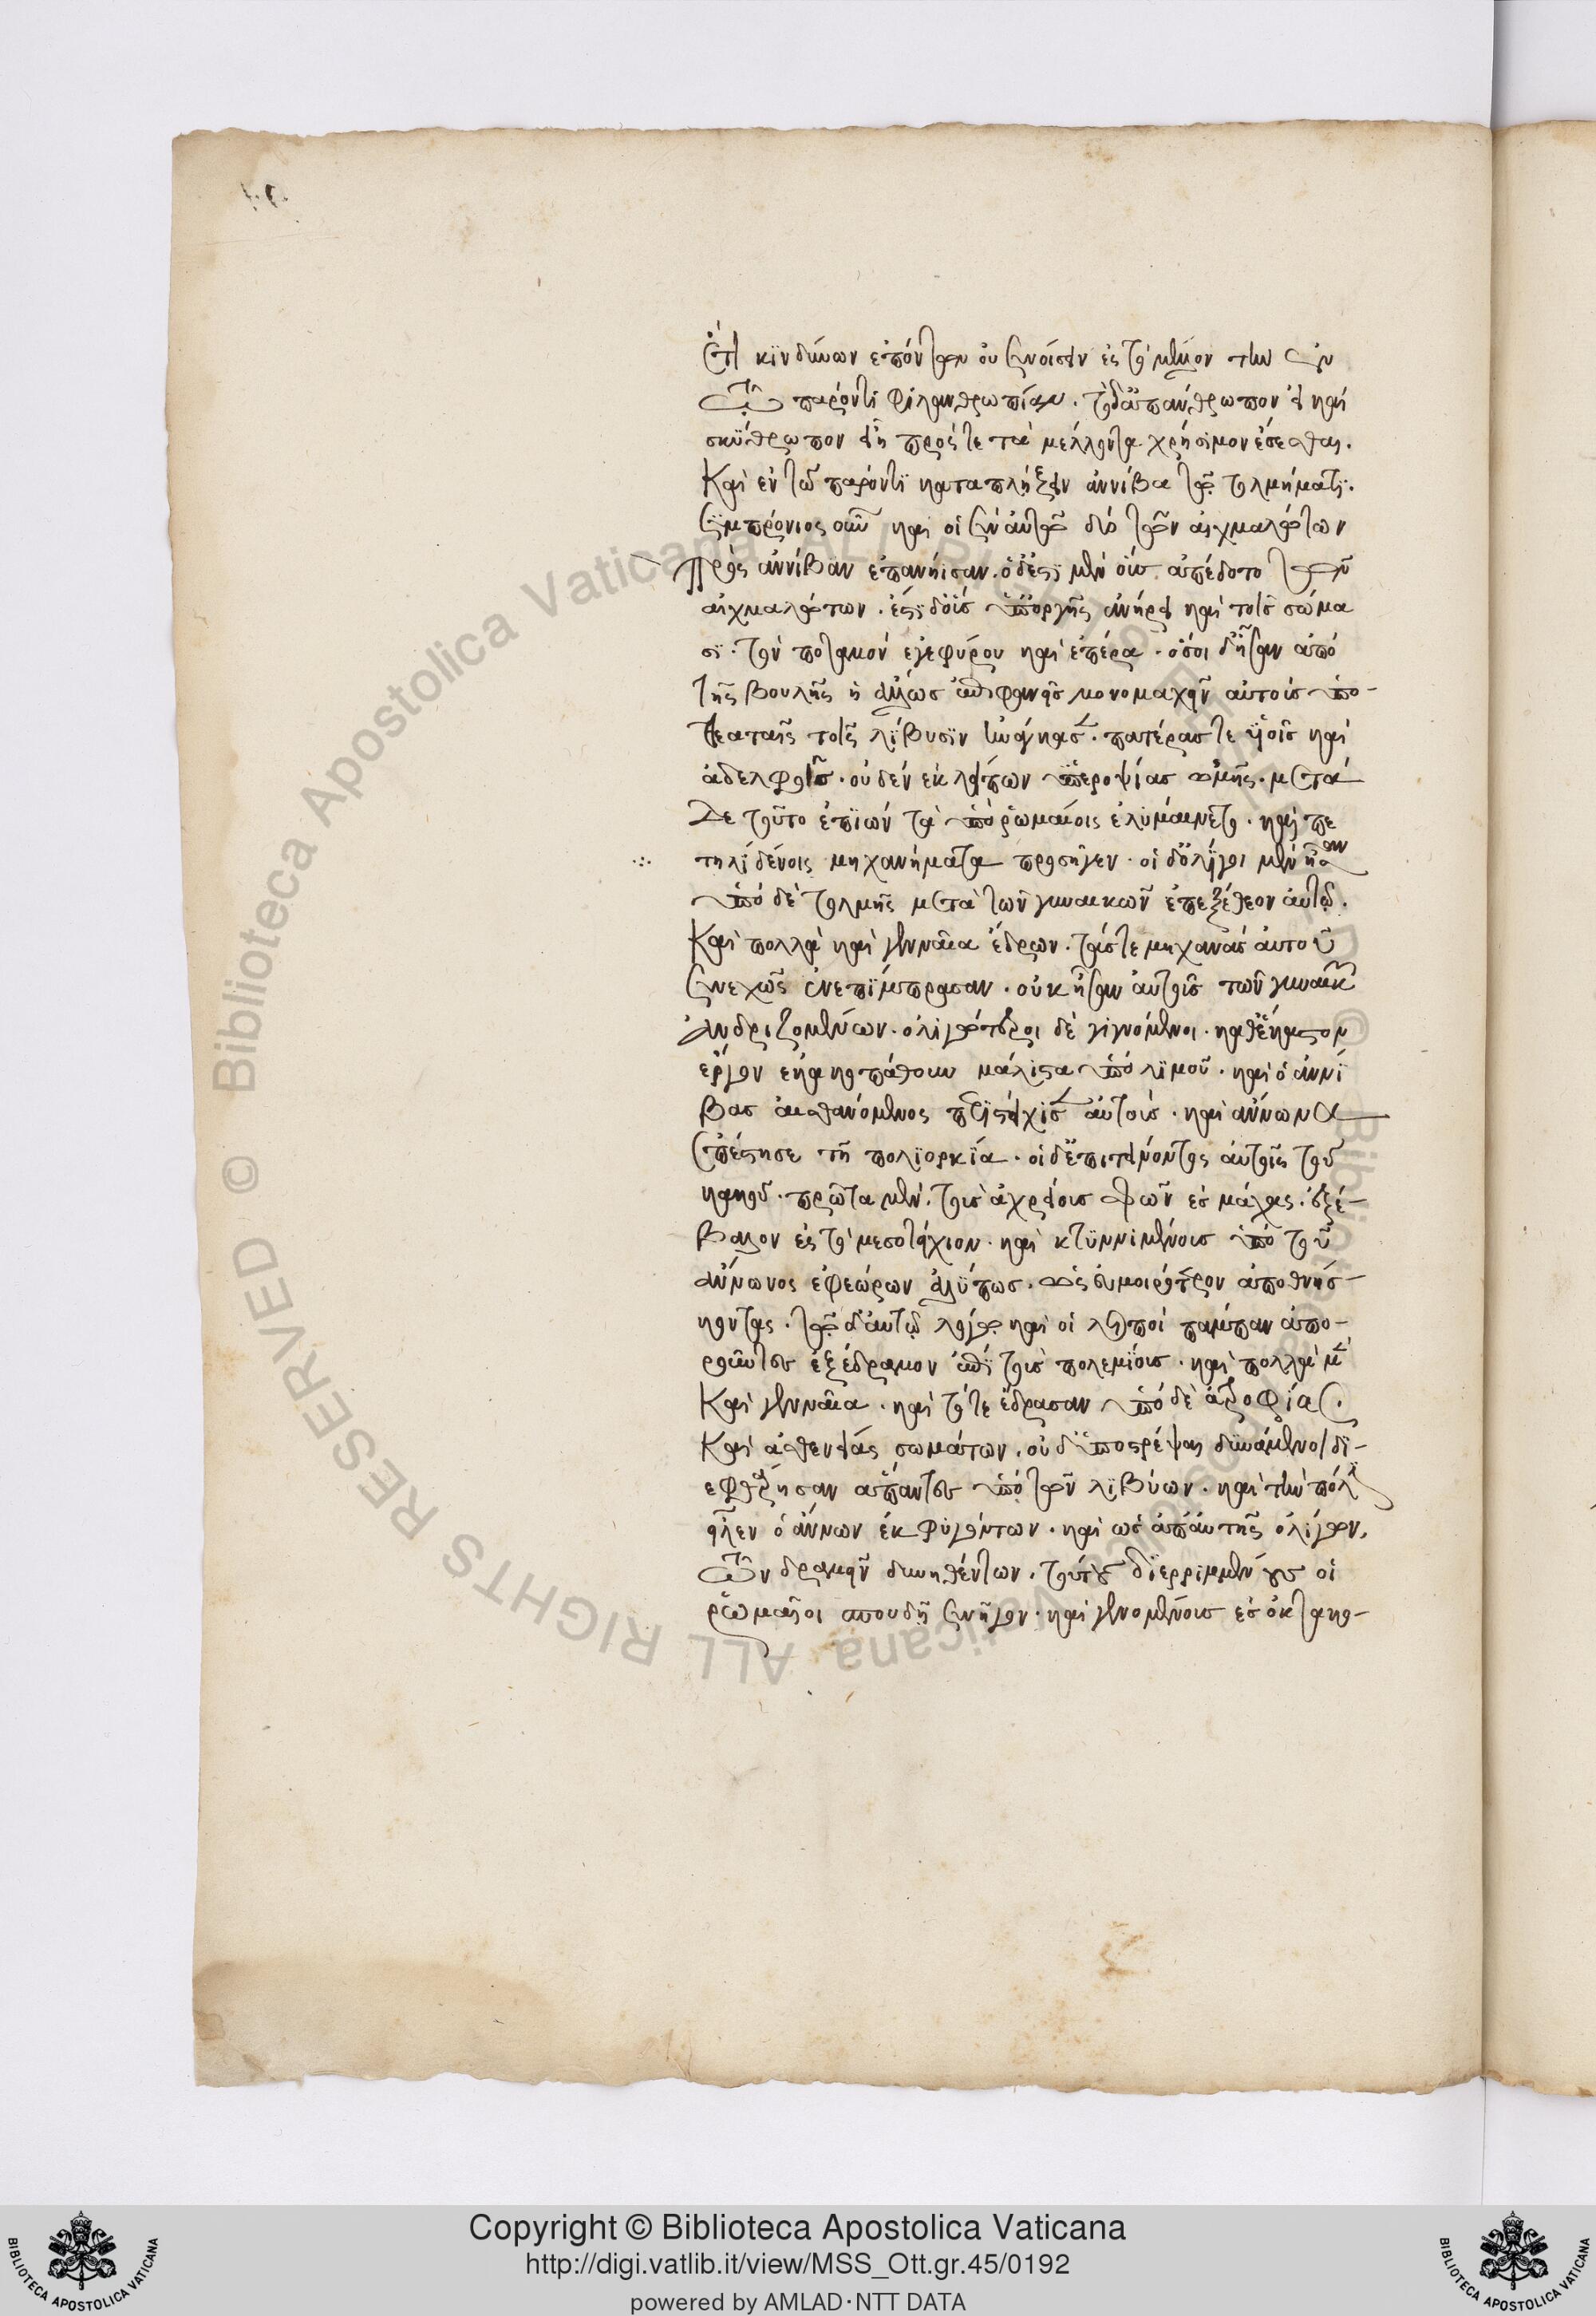 ἔτι κινδύνων ἐπόντων οὐ συνοίσειν ἐς τὸ μέλλον τὴν ἐν
τῷ παρόντι φιλανθρωπίαν. τὸ δ' ἀπάνθρωπον εἰ καὶ
σκυθρωπὸν εἴη πρός τε τὰ μέλλοντα χρήσιμον ἔσεσθαι.
Καὶ ἐν τῷ παρόντι καταπλήξειν ἀννίβα τῷ τολμήματι.
Σεμπρόνιος οὖν καὶ οἱ σὺν αὐτῷ δύο τῶν αἰχμαλώτων
πρὸς ἀννίβαν ἐπανήεσαν. ὁ δ' ἔστι μὲν οὓς ἀπέδοτο τῶν
αἰχμαλώτων. ἔστι δ' οὓς ὑπ' ὀργῆς ἀνήρει καὶ τοῖς σώμα
σι. τὸν ποταμὸν ἐγεφύρου καὶ ἐπέρα. ὅσοι δ' ἦσαν ἀπὸ
τῆς βουλῆς ἢ ἄλλως ἐπιφανεῖς μονομαχεῖν αὐτοὺς ὑπο-
θεαταῖς τοῖς λίβυσιν ἠνάγκασε. πατέρας τε υἱοῖς καὶ
ἀδελφοῖς. οὐδὲν ἐκλείπων ὑπεροψίας ὠμῆς. μετὰ
δὲ τοῦτο ἐπιὼν τὰ ὑπὸ ῥωμαίοις ἐλυμαίνετο. καὶ πε
τηλίνοις μηχανήματα προσῆγεν. οἱ δ' ὀλίγοι μὲν ἦσαν
ὑπὸ δὲ τόλμης μετὰ τῶν γυναικῶν ἐπεξέθεον αὐτῷ.
Καὶ πολλὰ καὶ γενναῖα ἔδρων. τάς τε μηχανὰς αὐτοῦ
συνεχῶς ἐνεπίμπρασαν. οὐκ ἧσσον αὐτοῖς τῶν γυναικῶν
ἀνδριζομένων. ὀλιγώτεροι δὲ γιγνόμενοι. καθ' ἕκαστον
ἔργον ἐκακοπάθουν μάλιστα ὑπὸ λιμοῦ. καὶ ὁ ἀννί
βας αἰσθανόμενος περιετείχισεν αὐτούς. καὶ ἄννωνα
ἐπέστησε τῇ πολιορκίᾳ. οἱ δ' ἐπιτείνοντος αὐτοῖς τοῦ
κακοῦ. πρῶτα μὲν τοὺς ἀχρείους σφῶν ἐς μάχας. ἐξέ-
βαλον ἐς τὸ μεσοτείχιον. καὶ κτιννυμένους ὑπὸ τοῦ
ἄννωνος ἐφεώρων ἀλύπως. ὡς εὐμοιρότερον ἀποθνήσ-
κοντας. τῷ δ' αὐτῷ λόγῳ καὶ οἱ λοιποὶ πάμπαν ἀπο-
ροῦντες ἐξέδραμον ἐπὶ τοὺς πολεμίους. καὶ πολλὰ μὲν
Καὶ γενναῖα. καὶ τότε ἔδρασαν ὑπὸ δὲ ἀτροφίας.
Καὶ ἀσθενείας σωμάτων, οὐδ' ὑποστρέψαι δυνάμενοι δι-
εφθάρησαν ἅπαντες ὑπὸ τῶν λιβύων. καὶ τὴν πόλιν
εἷλεν ὁ ἄννων ἐκφυγόντων. καὶ ὣς ἀπ' αὐτῆς ὀλίγων.
τῶν δραμεῖν δυνηθέντων. τούτους διερριμμένους οἱ
ῥωμαῖοι σπουδῇ συνῆγον. καὶ γενομένους ἐς ὀκτακο-
Copyright © Biblioteca Apostolica Vaticana
http://digi.vatlib.it/view/MSS_Ott.gr.45/0192
powered by AMLAD·NTT DATA